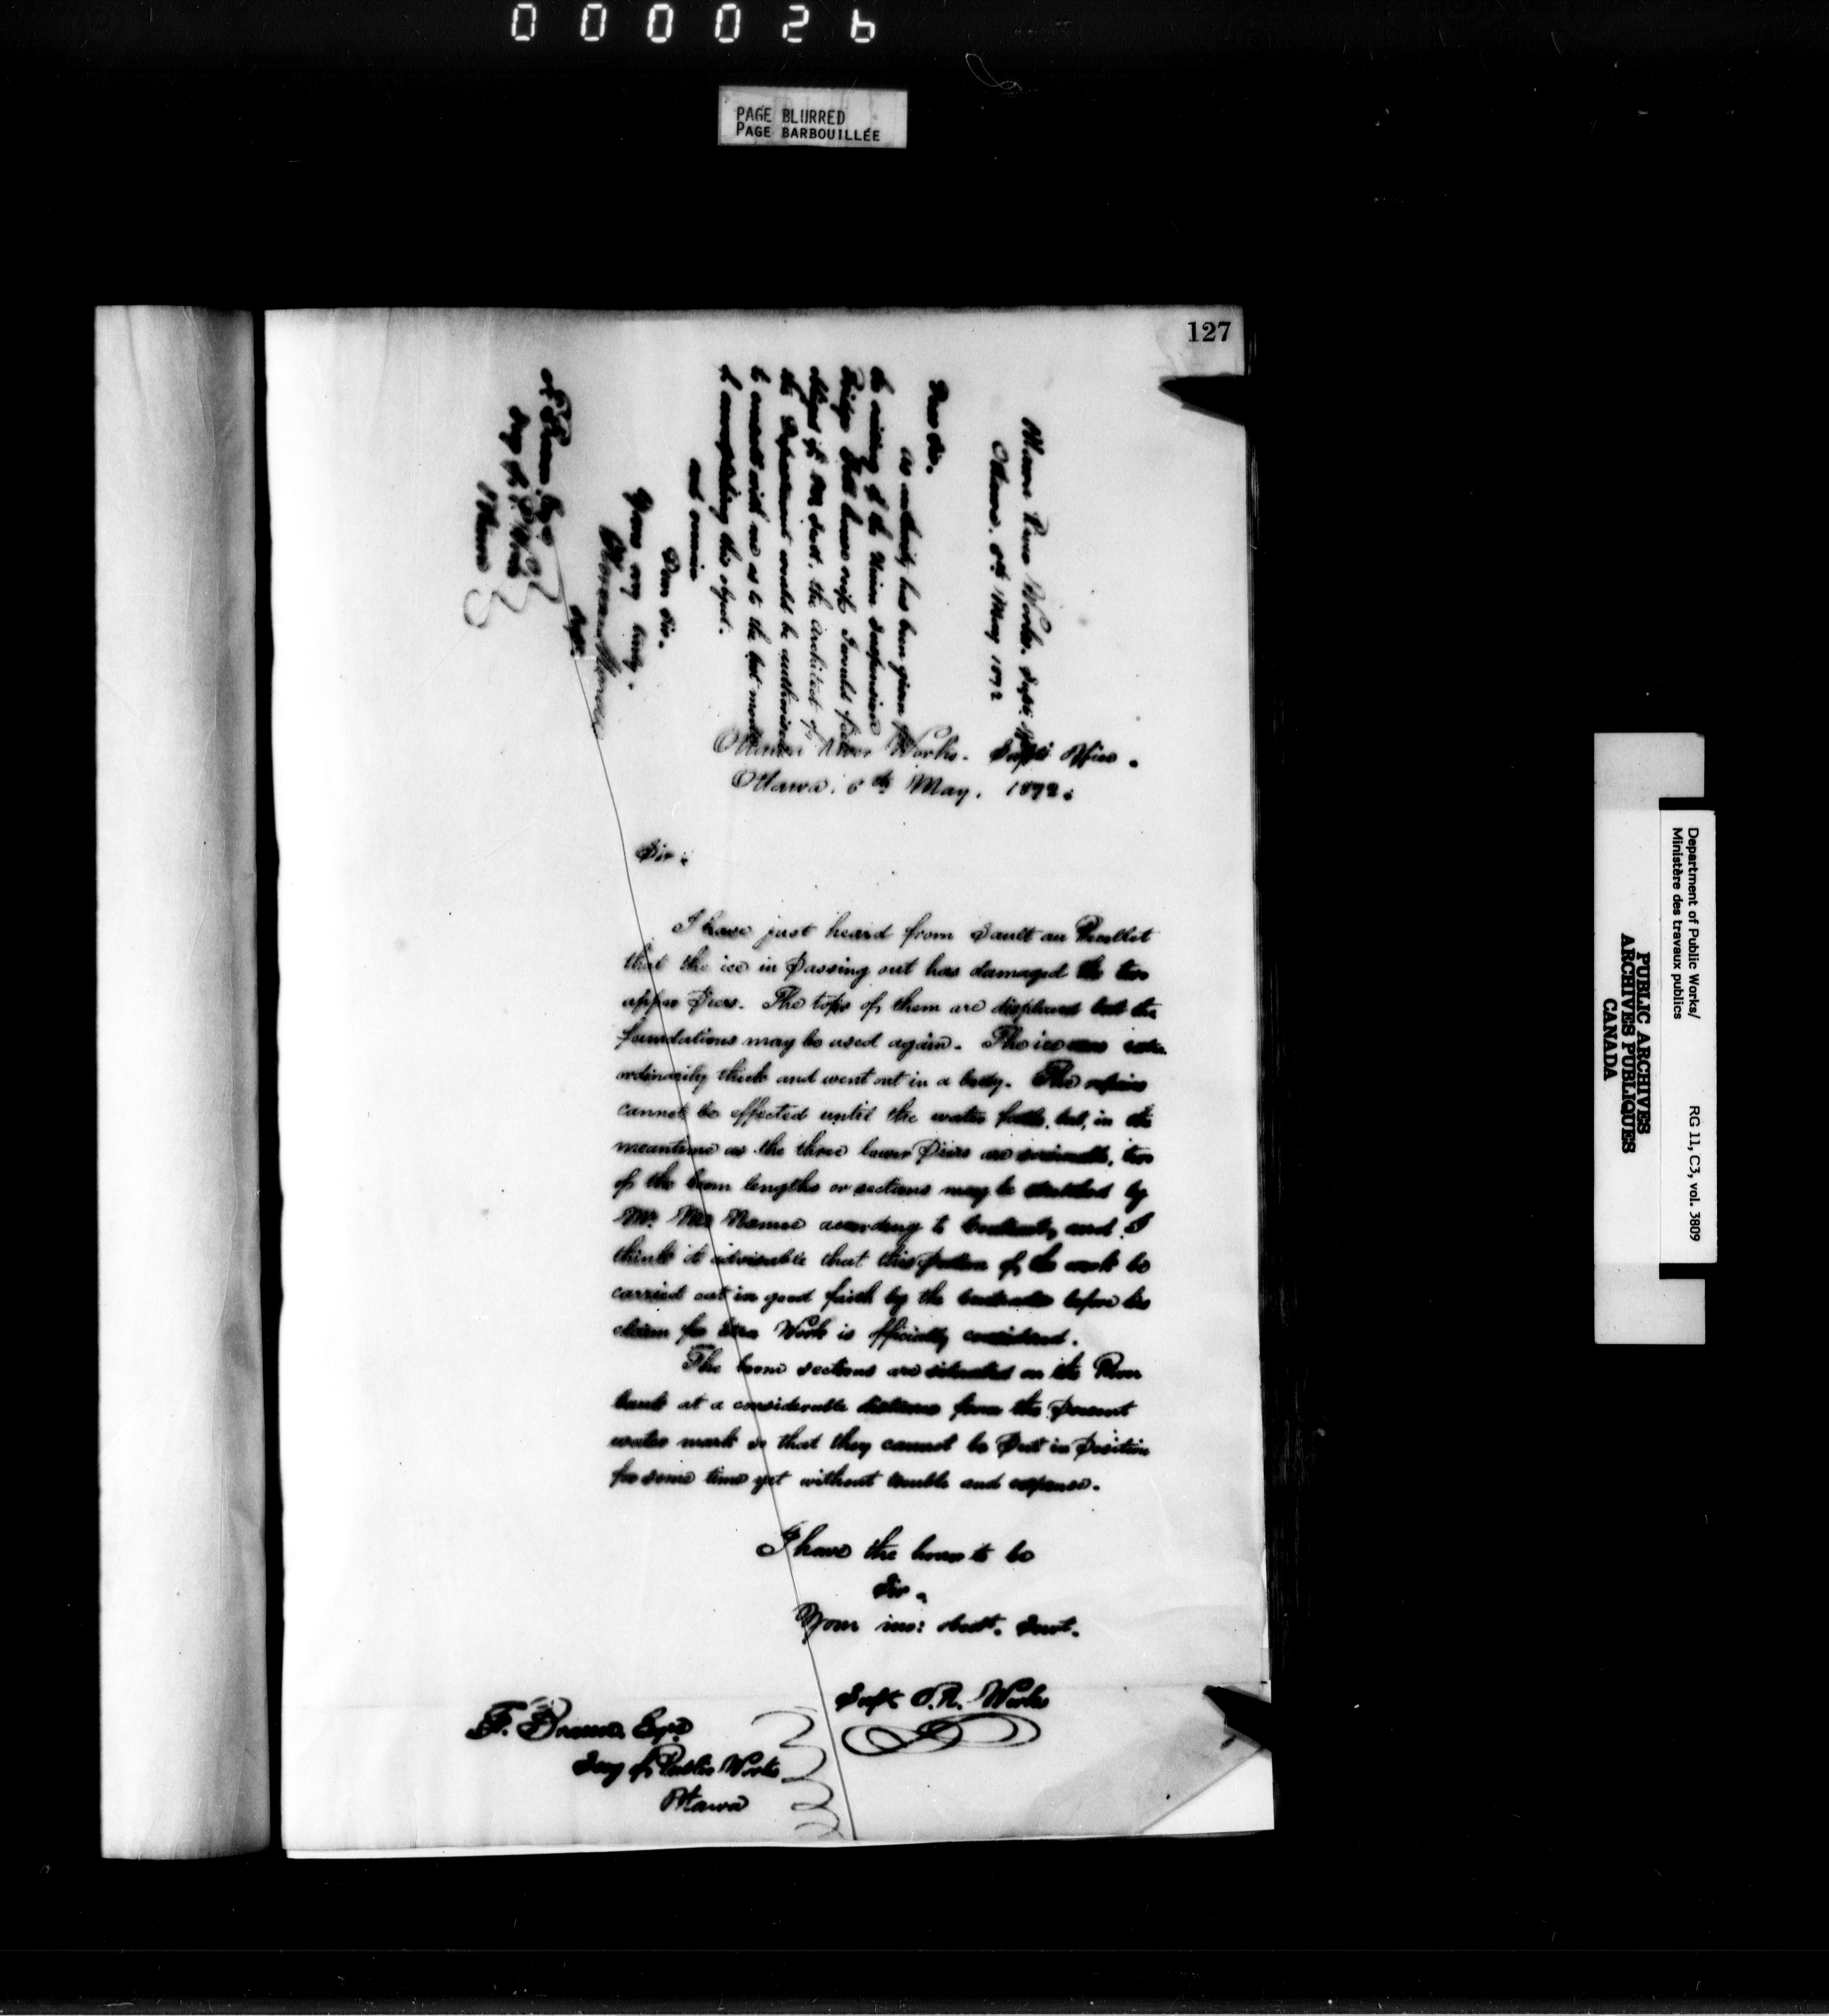 000026
PAGE BLURRED
PAGE BARBOUILLÉE
127
Ottawa River Works. Supts.
Ottawa. 6th May 1872
Dear Sir.
As authority has been given for
the of the Union Suspension
Bridge I would feel
obliged if Mr. the Architect of
the Department could be authorised
to consult with me as to the best mode
of accomplishing this object.
and remain
Dear Sir.
Yours very truly.
Supt.
F. Braun. Esqr
Secy of P. Works
Ottawa
Ottawa River Works. Supts Office.
Ottawa. 6th May. 1872.
Sir:
I have just heard from Sault au Recollet
that the ice in passing out has damaged the two
upper Piers. The tops of them are displaced but the
foundations may be used again. The ice was extra
ordinarily thick and went out in a body. The repairs
cannot be effected until the water falls, but, in the
meantime as the three lower Piers are two
of the boom lengths or sections may be stretched by
Mr. according to Contract, and I
think it advisable that this portion of the work be
carried out in good faith by the Contractor before his
claim for Extra Work is officially considered.
The boom sections are situated on the River
bank at a considerable distance from the present
water mark so that they cannot be put in position
for some time yet without trouble and expense.
I have the honor to be
Sir.
Your mo: obedt. Servt.
Supt. O.R. Works
F. Braun. Esqr
Secy of Public Works
Ottawa
Department of Public Works/
Ministère des travaux publics
RG 11, C3, vol. 3809
PUBLIC ARCHIVES
ARCHIVES PUBLIQUES
CANADA